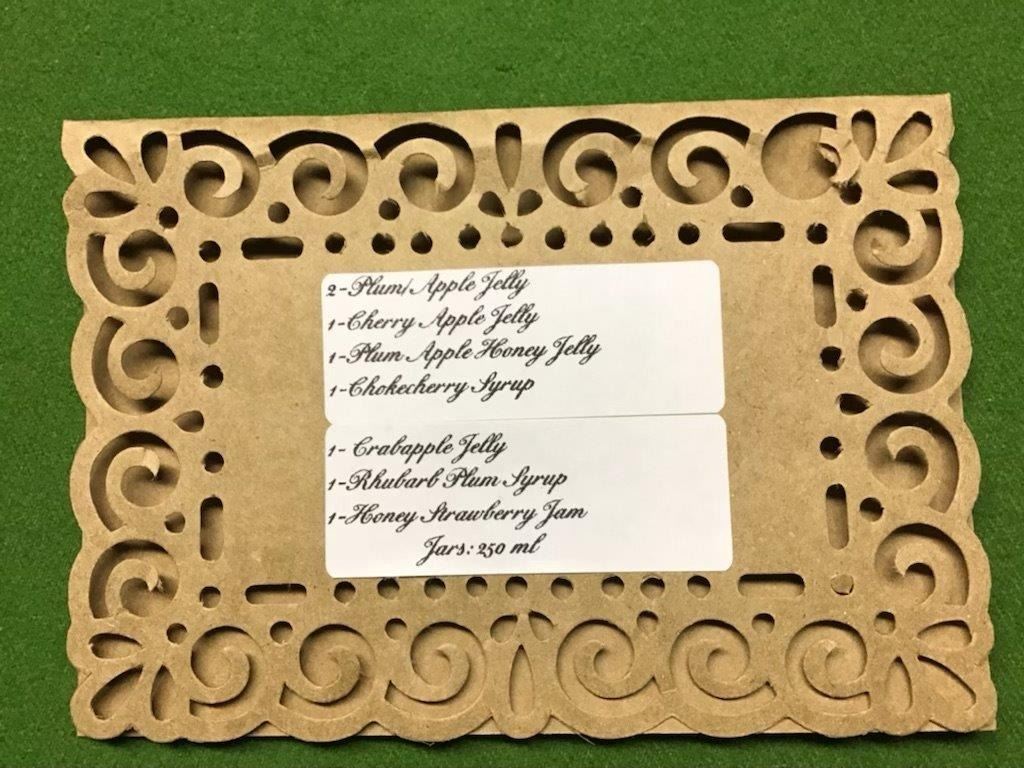 2-Plum/Apple Jelly
1-Cherry Apple Jelly
1-Plum Apple Honey Jelly
1-Chokecherry Syrup
1- Crabapple Jelly
1-Rhubarb Plum Syrup
1-Honey Strawberry Jam
Jars: 250 ml